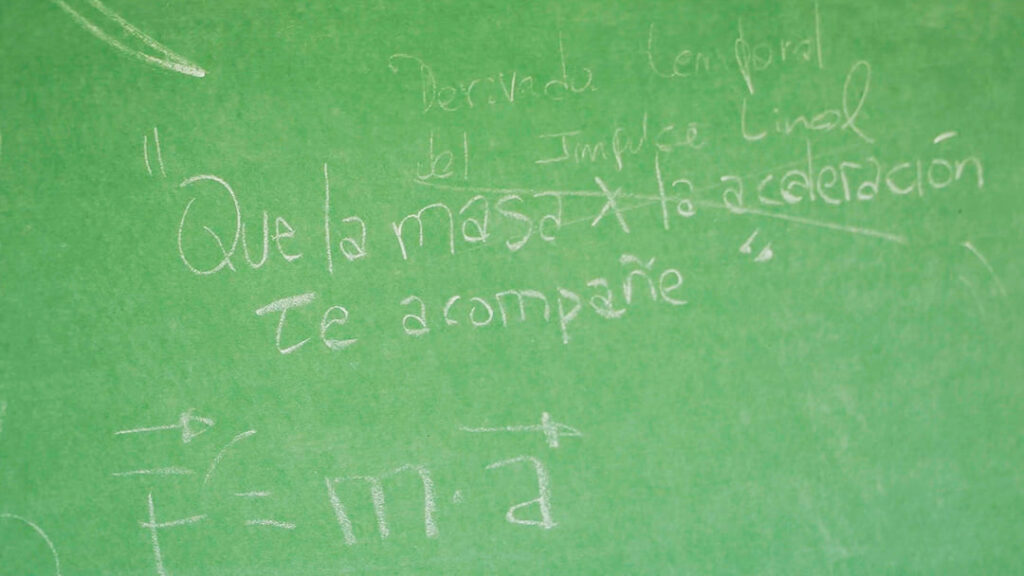 Derivada temporal
del Impulso Lineal
"Que la masa X la aceleración
te acompañe"
F = m · a